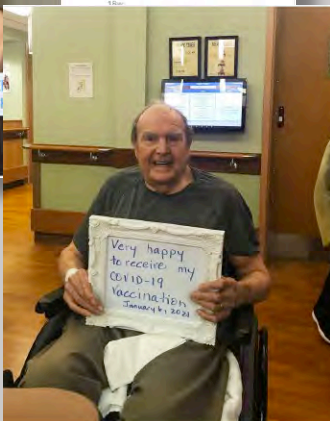 Very happy
to receive my
COVID-19
Vaccination
January 6, 2021